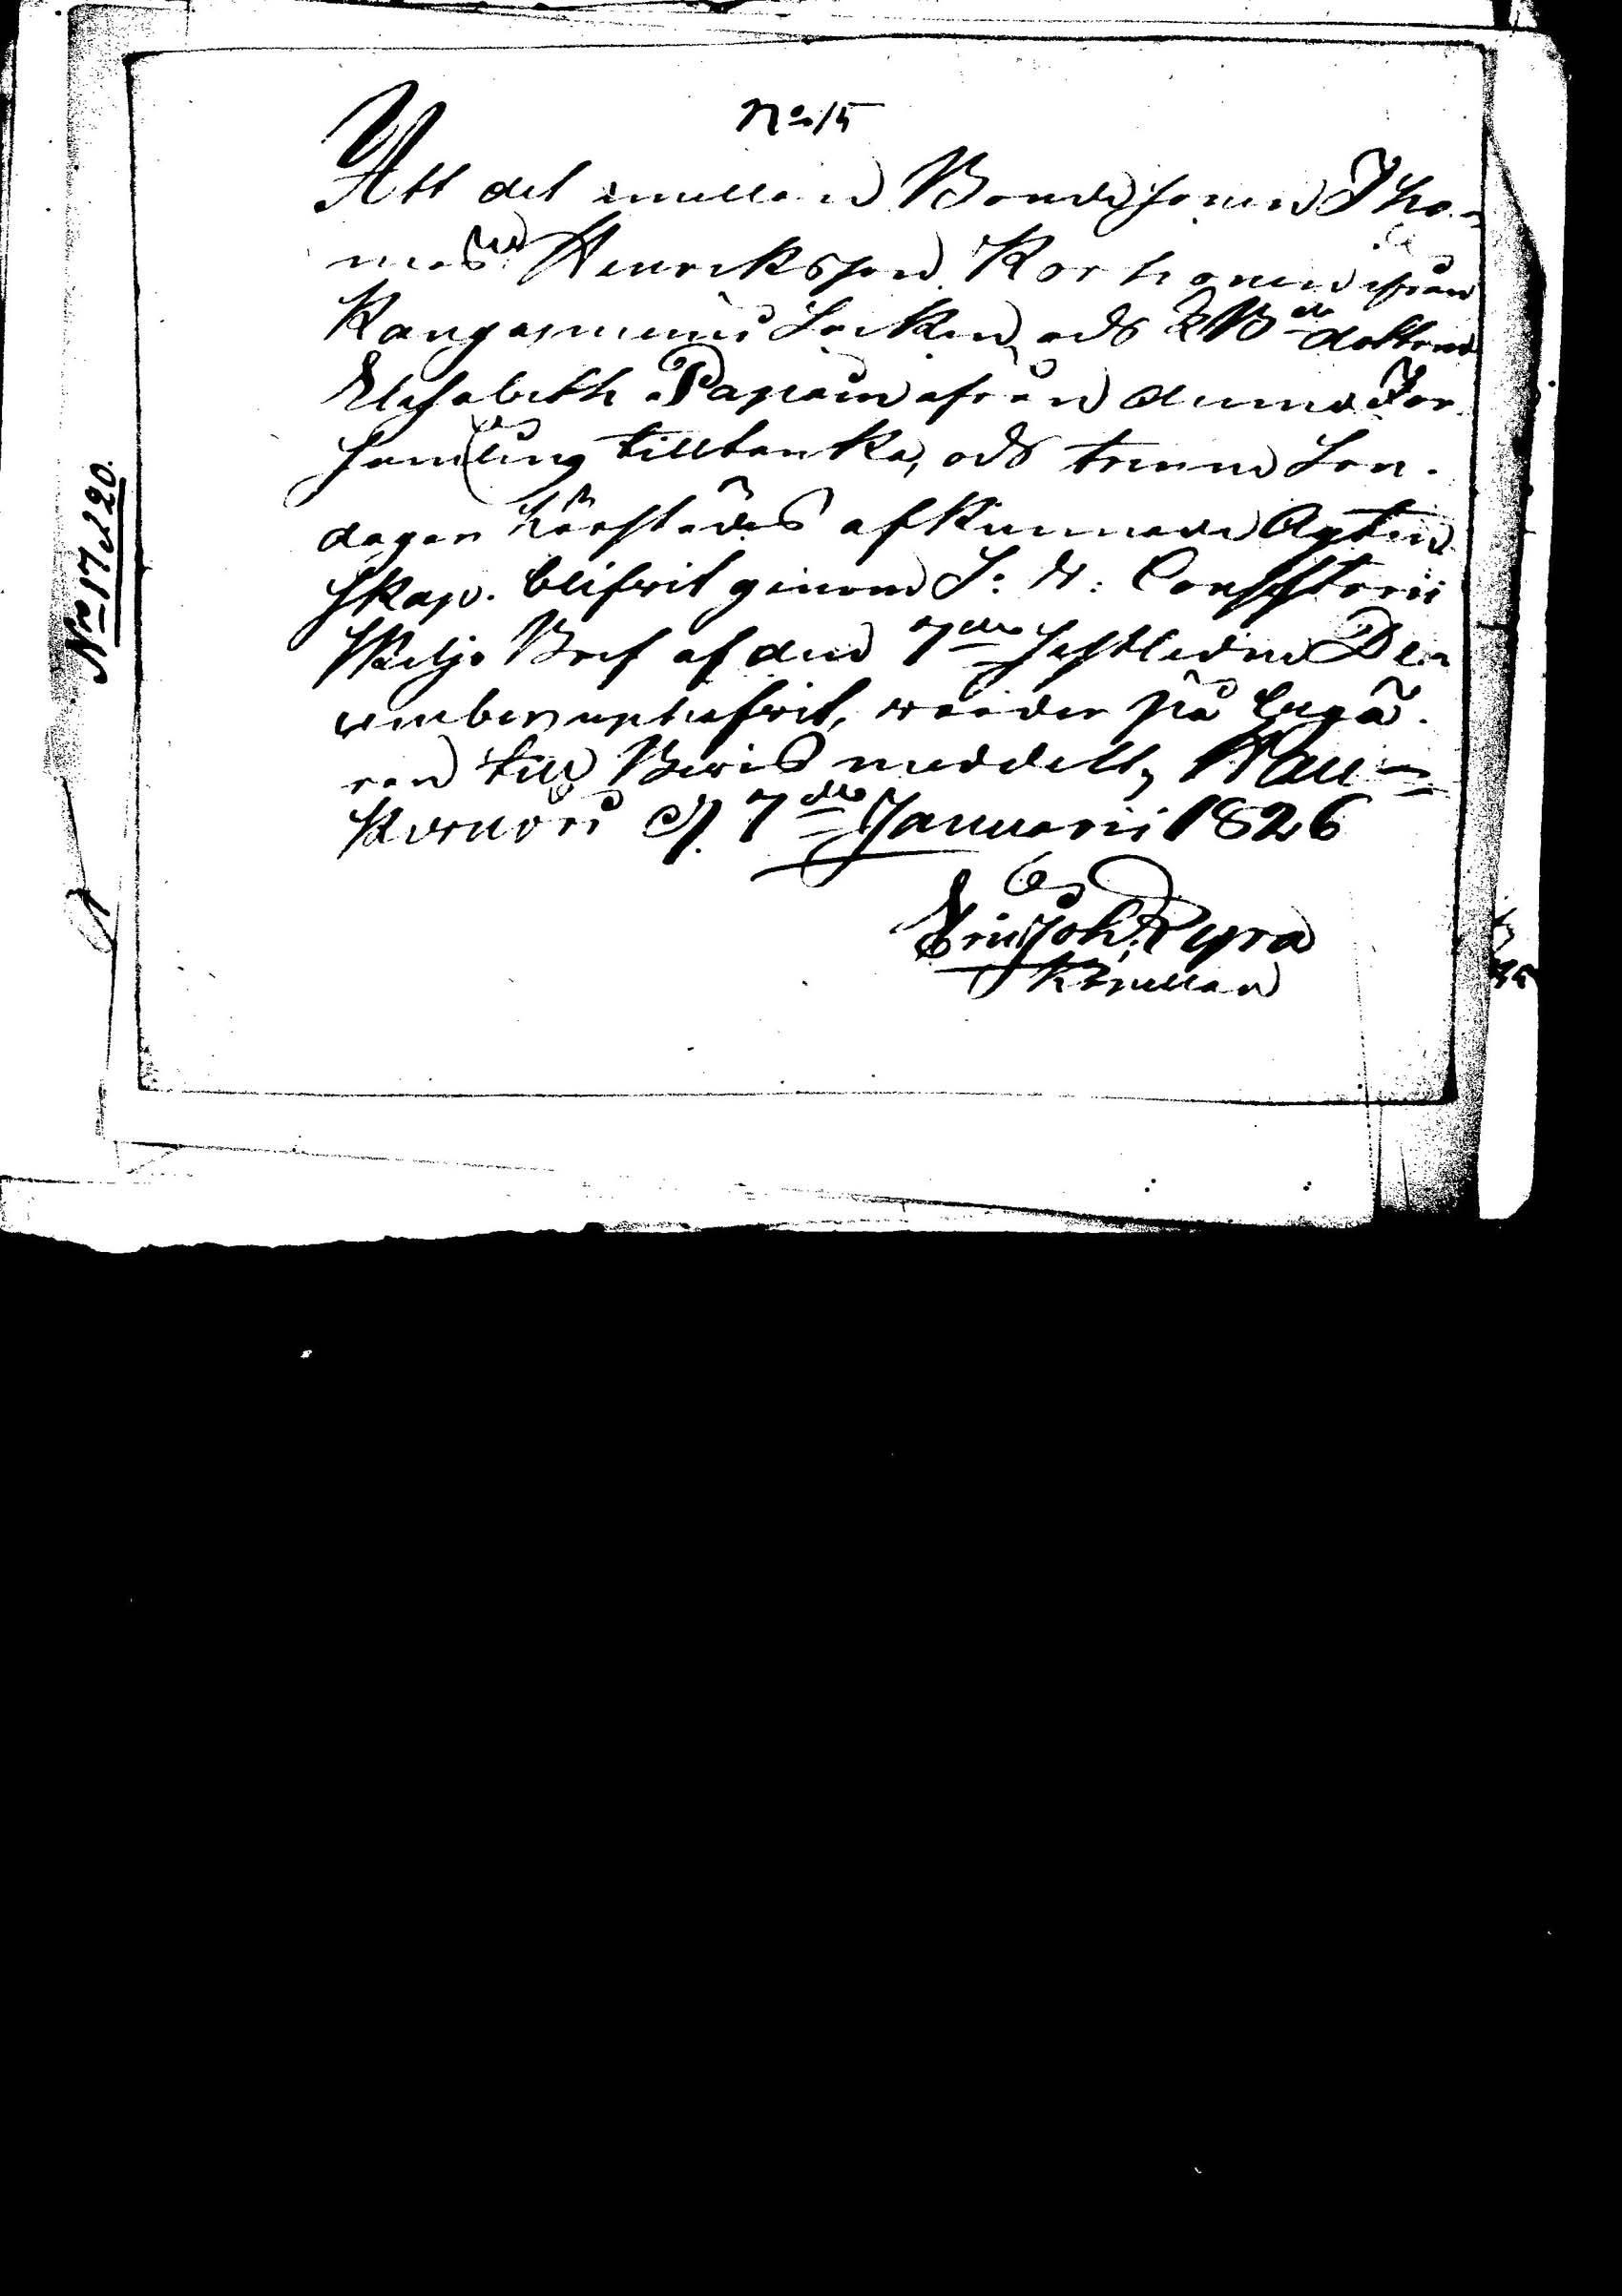 No 15
Att det emellan Bondesonen Tho-
mas Henriksson Korhonen ifrån
Kangasniemi Sockn och Bde dottren
Elisabeth Papain ifrån denna För
samling tilltänkta, och trenne Sön-
dagar härstädes afkunnade Ägten
skap. blifvit genom S: W: Consistorii
Skiljo Bref af den 7de sistledne De
cember uphäfvit, warder på begä-
ran till Bewis meddelt, Hau-
kivuori d. 7de Januarii 1826
Eric Joh. Pyra
Kapellan
No 17 d 20.